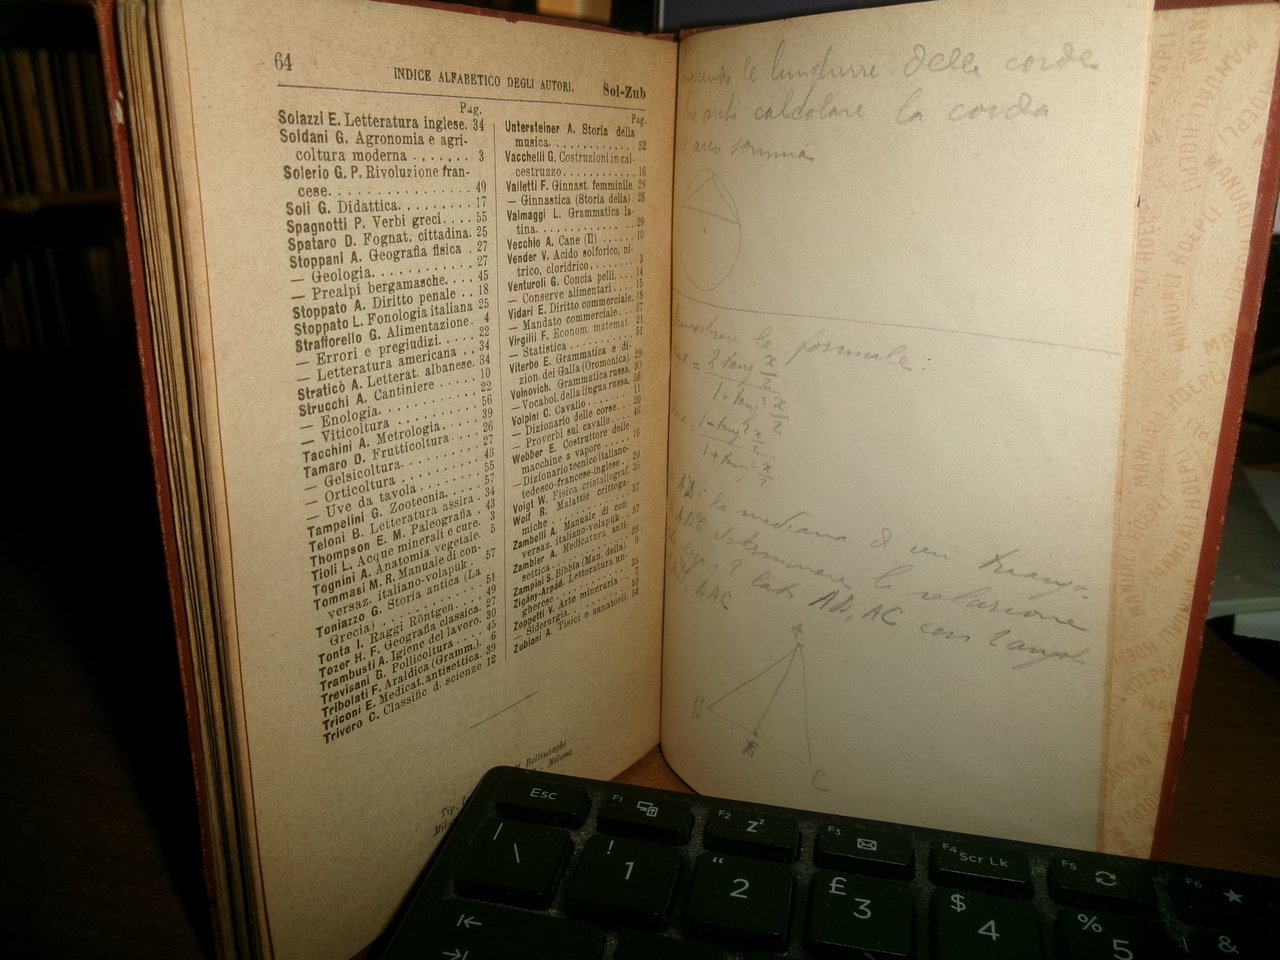 64
INDICE ALFABETICO DEGLI AUTORI.
Sol-Zub
Pag.
Solazzi E. Letteratura inglese. 34
Soldani G. Agronomia e agri-
coltura moderna ....... 3
Solerio G. P. Rivoluzione fran-
cese. .............. 49
Soli G. Didattica. ........ 17
Spagnotti P. Verbi greci. .... 55
Spataro D. Fognat. cittadina. 25
Stoppani A. Geografia fisica . 27
— Geologia. ........ 27
— Prealpi bergamasche. ... 45
Stoppato A. Diritto penale .. 18
Stoppato L. Fonologia italiana 25
Strafforello G. Alimentazione. 4
— Errori e pregiudizi. .... 22
— Letteratura americana .. 34
Straticò A. Letterat. albanese. 34
Strucchi A. Cantiniere ..... 10
— Enologia. .......... 22
— Viticoltura ......... 56
Tacchini A. Metrologia. .... 39
Tamaro D. Frutticoltura. ... 26
— Gelsicoltura. ........ 27
— Orticoltura ......... 43
— Uve da tavola ....... 55
Tampelini G. Zootecnia. .... 57
Teloni B. Letteratura assira. 34
Thompson E. M. Paleografia . 43
Tioli L. Acque minerali e cure. 3
Tognini A. Anatomia vegetale. 5
Tommasi M. R. Manuale di con-
versaz. italiano-volapük . . 57
Toniazzo G. Storia antica (La
Grecia) ............. 51
Tonta I. Raggi Röntgen. .... 49
Tozer H. F. Geografia classica. 27
Trambusti A. Igiene del lavoro. 30
Trevisani G. Pollicoltura ... 45
Tribolati F. Araldica (Gramm.). 6
Triconi E. Medicat. antisettica. 39
Trivero C. Classific. d. scienze 12
Pag.
Untersteiner A. Storia della
musica. ............ 52
Vacchelli G. Costruzioni in cal-
cestruzzo. ........... 16
Valletti F. Ginnast. femminile 28
— Ginnastica (Storia della) . 28
Valmaggi L. Grammatica la-
tina. .............. 29
Vecchio A. Cane (Il) ...... 10
Vender V. Acido solforico, ni-
trico, cloridrico ........ 3
Venturoli G. Concia pelli. ... 14
— Conserve alimentari .... 15
Vidari E. Diritto commerciale. 18
— Mandato commerciale. .. 37
Virgilii F. Econom. matemat. 21
— Statistica .......... 51
Viterbo E. Grammatica e di-
zion. dei Galla (Oromonica) 29
Voinovich. Grammatica russa. 30
— Vocabol. della lingua russa. 56
Volpini C. Cavallo ........ 11
— Dizionario delle corse. .. 20
— Proverbi sul cavallo ... 46
Webber E. Costruttore delle
macchine a vapore ..... 16
— Dizionario tecnico italiano-
tedesco-francese-inglese .. 20
Voigt W. Fisica cristallograf. 25
Wolf R. Malattie crittoga-
miche ............. 37
Zambelli A. Manuale di con-
versaz. italiano-volapük . . 57
Zambler A. Medicatura anti-
settica ............. 39
Zampini S. Bibbia (Man. della). 9
Zigány-Arpád. Letteratura un-
gherese ............ 35
Zoppetti V. Arte mineraria .. 7
— Siderurgia. ......... 50
Zubiani A. Tisici e sanatorii. 54
Bellinzaghi
Milano
le lunghezze delle corde
calcolare la corda
arco somma
le formule:
= 2 tang x/2
1 + tang² x/2
= 1 - tang² x/2
1 + tang² x/2
AD è la mediana di un triang-
determinare la relazione
AB, AC con l'angolo
DAC
A
B
C
MANUALI HOEPLI
Esc
F1
F2
zz
F3
F4 Scr Lk
F5
F6
| \
! 1
“ 2
£ 3
$ 4
% 5
&